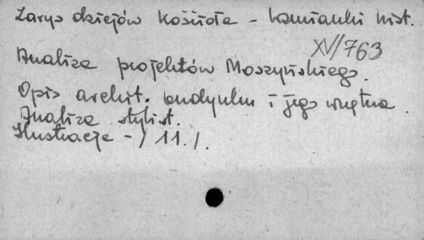 Zarys dziejów Kościoła - wzmianki hist.
XV/763
Analiza projektów Moszyńskiego.
Opis archit. budynku i jego wnętrza.
Analiza stylist.
Ilustracje - / 11. /.